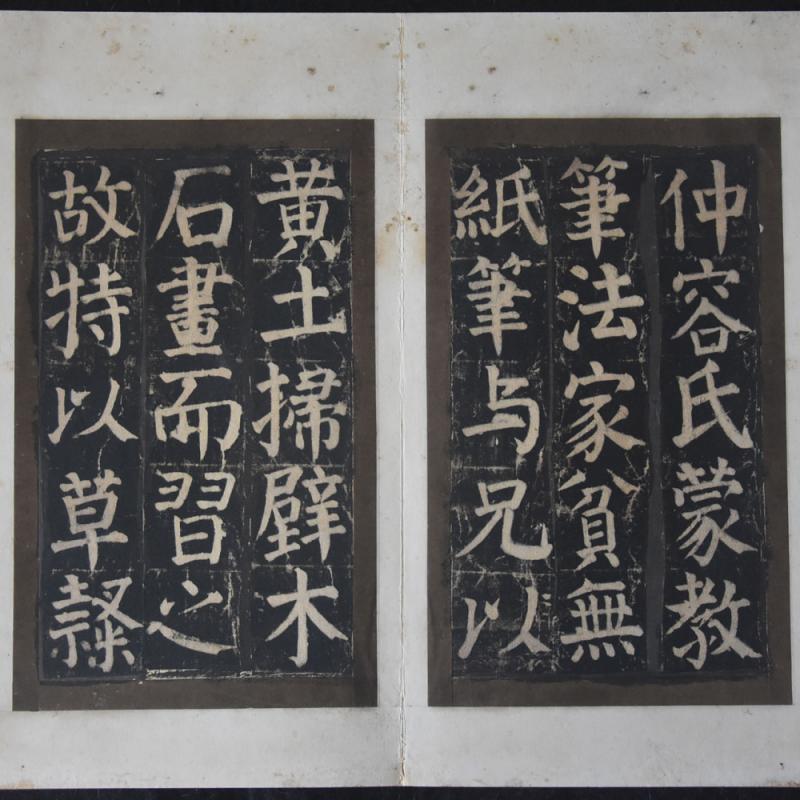 仲容氏蒙教
筆法家貧無
紙筆与兄以
黄土掃壁木
石畫而習之
故特以草隸